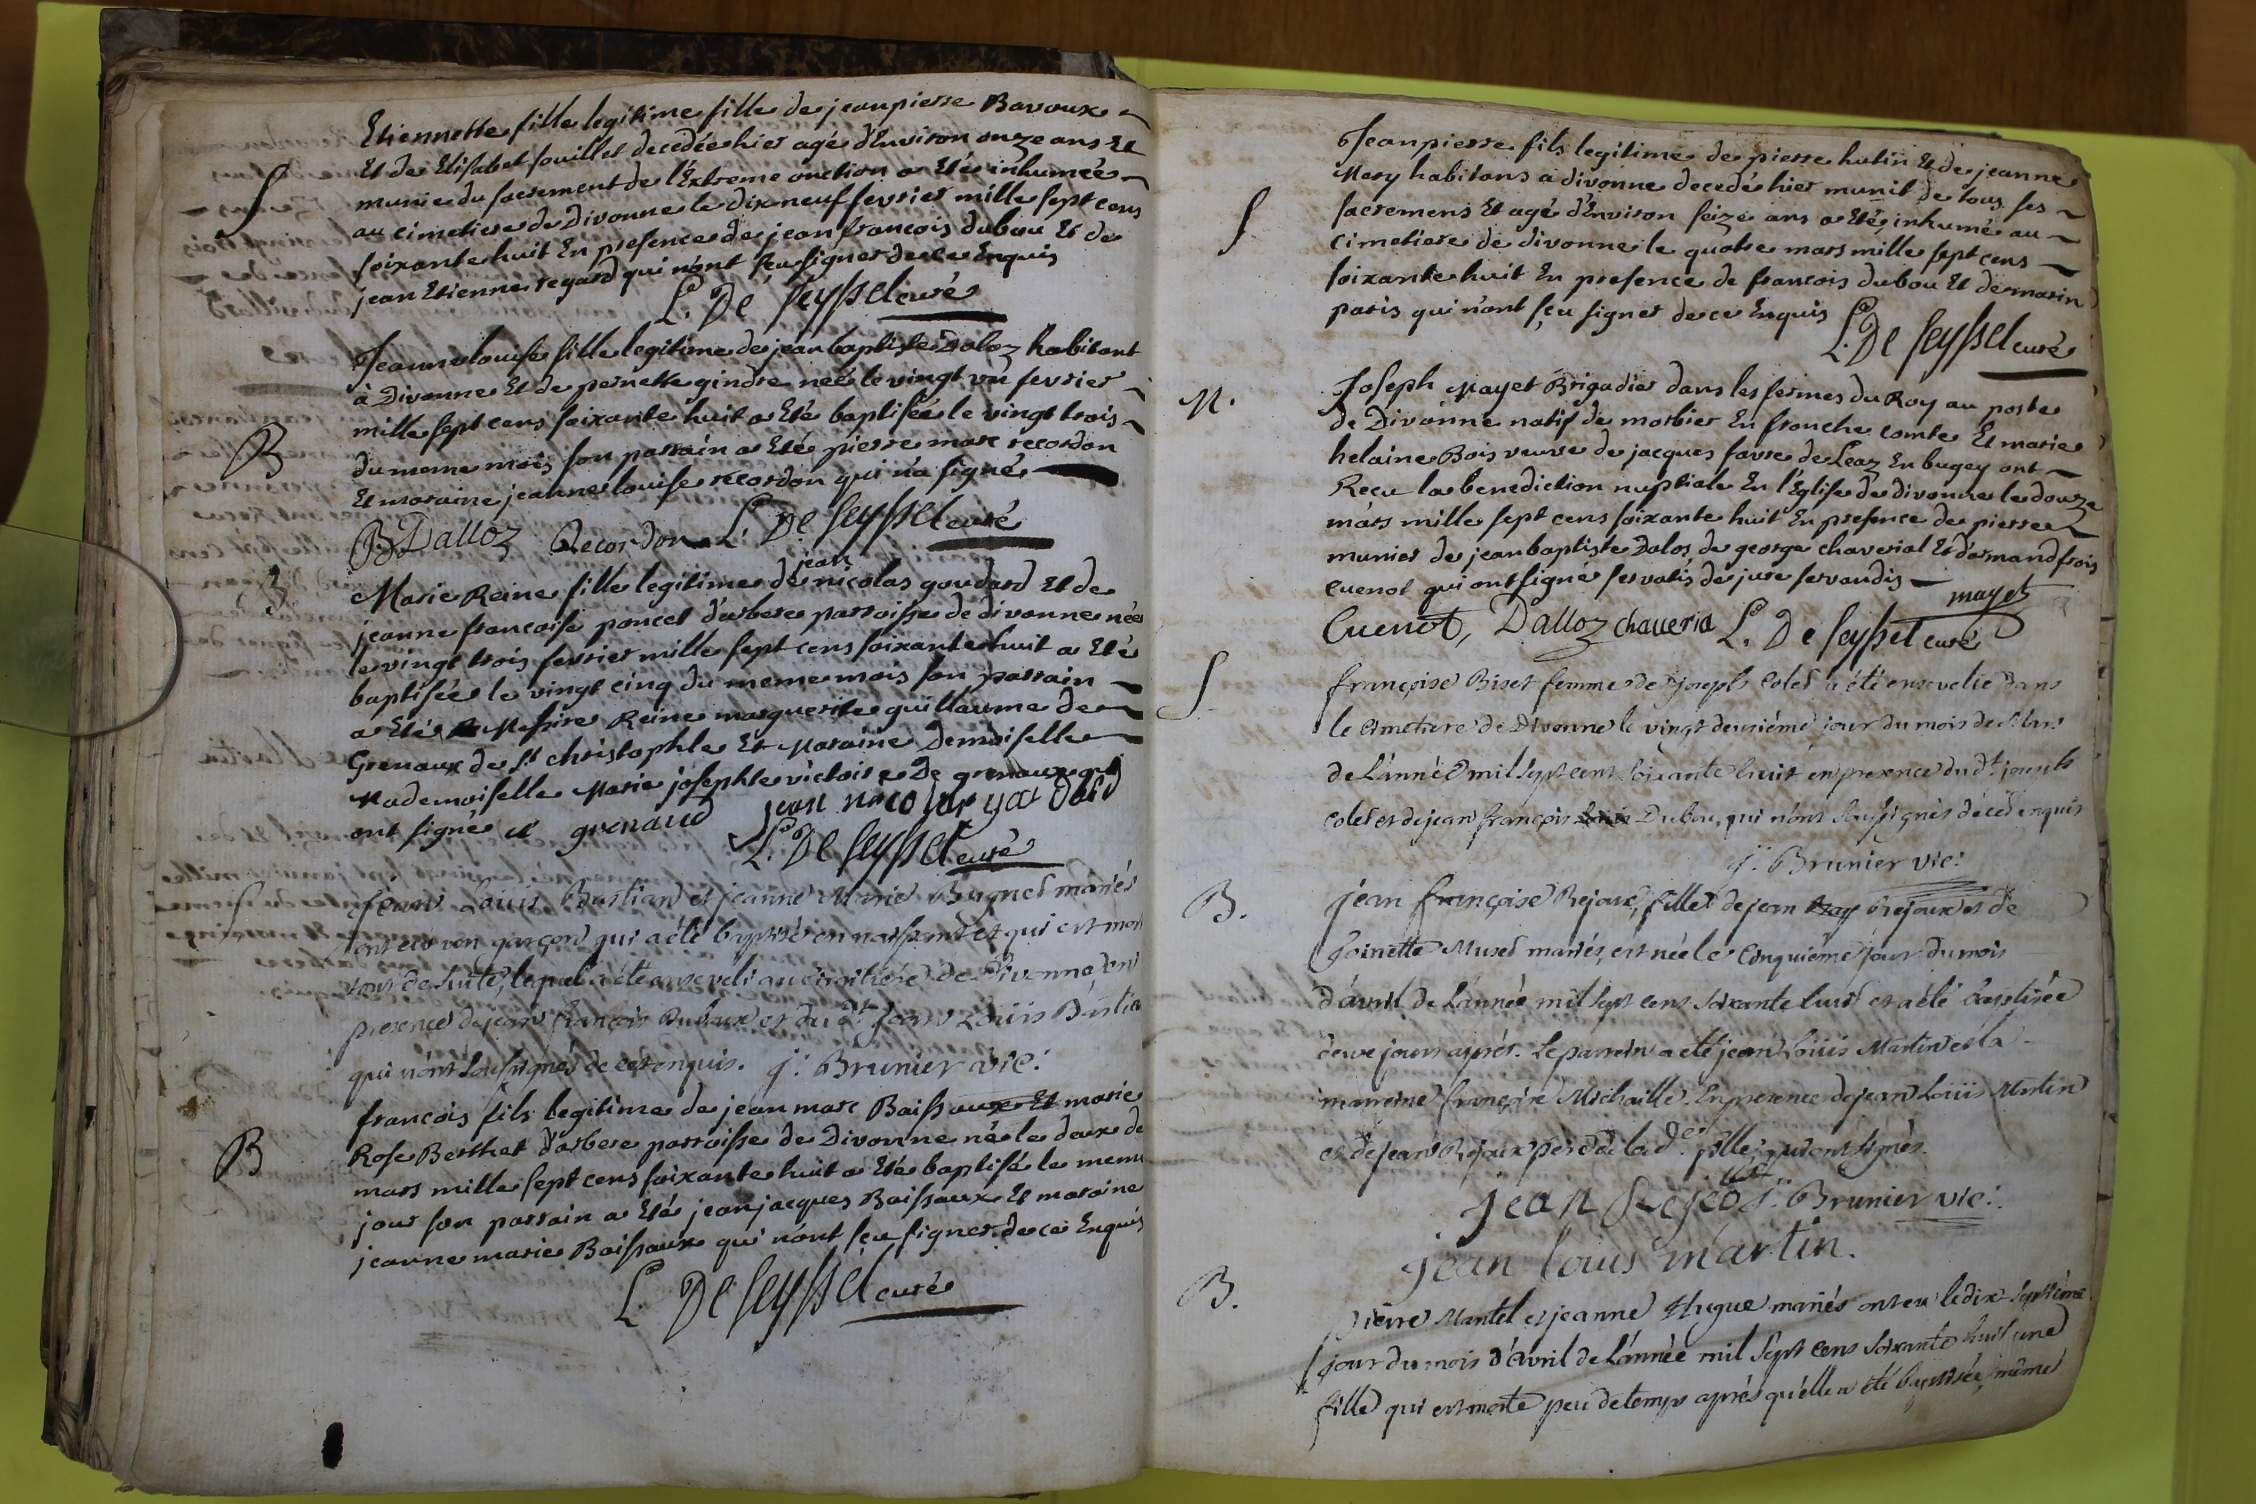 Etiennette fille legitime fille de jeanpierre Bavoux
Et de Elisabet fouillet decedée hier agé d'Environ onze ans Et
munie du sacrement de l'Extreme onction a Eté inhumée
S
au cimetiere de Divonne le dix neuf fevrier mille sept cens
soixante huit En presence de jean francois dubou Et de
jean Etienne regard qui n'ont sçu signer de ce Enquis
L. De Seyssel curé
Jeanne louise fille legitime de jean baptiste Daloz habitant
à Divonne Et de pernette gindre neé le vingt un fevrier
mille sept cens soixante huit a Eté baptisée le vingt trois
B
du meme mois son parrain a Eté pierre marc recordon
Et maraine jeanne louise recordon qui n'a signé
B Dalloz Recordon L. De Seyssel curé
B
Marie Reine fille legitime de jean nicolas goudard Et de
jeanne francoise poncet d'arbere parroisse de divonne née
le vingt trois fevrier mille sept cens soixante huit a Eté
baptisée le vingt cinq du meme mois son parrain
a Eté Messire Reine marguerite guillaume de
Grenaux de St christophle Et Maraine Demoiselle
Mademoiselle Marie josephle victoire De grenaux qui
ont signé grenaud jean nicolas
L. De Seyssel curé
S
jean Louis Bastian et jeanne Marie Bugnet mariés
ont eu un garçon qui a été baptisé en naissant et qui est mort
tout de suite, lequel a été enseveli au cimitiére de Divonne, en
presence de jean françois Duboux et du dt. jean Louis Bastian
qui n'ont sçu signés de ce enquis. j: Brunier vic:
francois fils legitime de jean marc Baissaux Et marie
B
Rose Berthet d'arbere parroisse de Divonne né le deux de
mars mille sept cens soixante huit a Eté baptisé le meme
jour son parrain a Eté jean jacques Baissaux Et maraine
jeanne marie Baissaux qui n'ont sçu signer de ce Enquis
L. De Seyssel curé
Jeanpierre fils legitime de pierre hutin Et de jeanne
Mary habitans a divonne decedé hier munit de tous ses
S
sacremens Et agé d'Environ seize ans a Eté inhumé au
cimetiere de divonne le quatre mars mille sept cens
soixante huit En presence de francois dubou Et de marin
paris qui n'ont sçu signer de ce Enquis
L. De Seyssel curé
M.
Joseph Mayet Brigadier dans les fermes du Roy au poste
de Divonne natif de morbier En franche comte Et marie
helaine Bois veuve de jacques favre de Leaz En bugey ont
Recu la benediction nuptiale En l'Eglise de divonne le douze
mars mille sept cens soixante huit En presence de pierre
munier de jean baptiste Dalos de george chaverial Et d'armand frois
cuenot qui ont signé servatis de jure servandis
mayet
Cuenot, Dalloz chaueria L. De Seyssel curé
S.
françoise Biset femme de joseph Colet a été ensevelie dans
le Cimetiere de Divonne le vingt deuxiéme jour du mois de Mars
de L'année mil sept cent soixante huit en presence du dt. joseph
Colet et de jean françois Dubou, qui n'ont sçu signés de ce enquis
j: Brunier vic:
B.
jean françoise Rejoux, fille de jean Rejoux et de
Musel mariés, est née le Cinquiéme jour du mois
d'avril de L'année mil sept cent soixante huit et a été Baptisée
deux jours aprés. Le parrein a eté jean Loüis Martin et la
marreine françoise Michaille. En presence de jean Loüis Martin
et de jean Rejoux pere de la de. fille qui ont signés.
jean j: Brunier vic:
jean louis martin.
B.
pierre Martel et jeanne Hugue mariés ont eu le dix-septiéme
jour du mois d'avril de L'année mil sept cens soixante huit une
fille qui est morte peu de temps aprés qu'elle a été baptisée, même